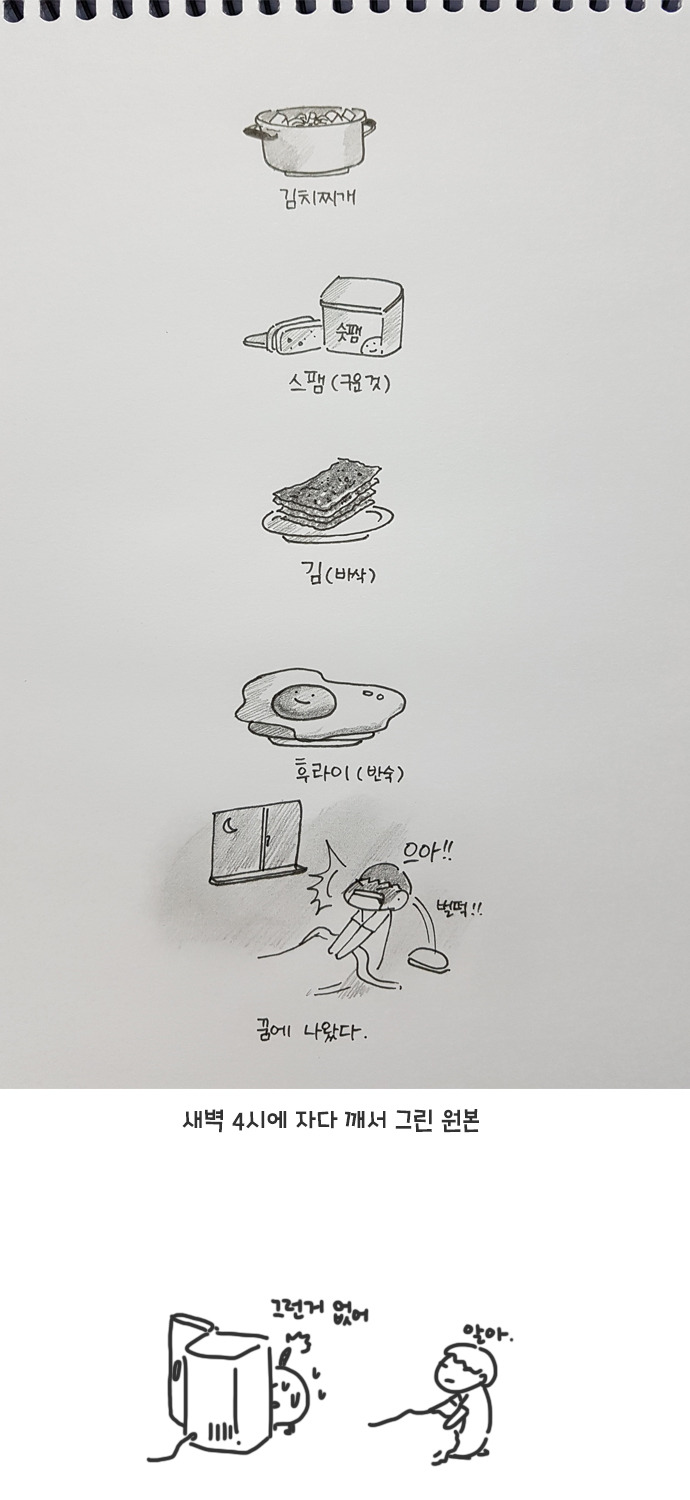 김치찌개
슷팸
스팸 (구운것)
김 (바삭)
후라이 (반숙)
으아!!
벌떡!!
꿈에 나왔다.
새벽 4시에 자다 깨서 그린 원본
그런거 없어
알아.